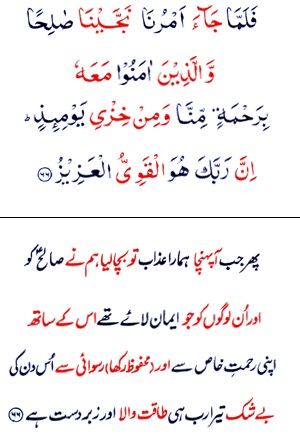 فَلَمَّا جَآءَ اَمْرُنَا نَجَّيْنَا صٰلِحًا
وَّالَّذِيْنَ اٰمَنُوْا مَعَهٗ
بِرَحْمَةٍ مِّنَّا وَمِنْ خِزْىِ يَوْمِئِذٍ ؕ
اِنَّ رَبَّكَ هُوَ الْقَوِىُّ الْعَزِيْزُ ﴿۶۶﴾
پھر جب آپہنچا ہمارا عذاب تو بچالیا ہم نے صالحؑ کو
اور اُن لوگوں کو جو ایمان لائے تھے اس کے ساتھ
اپنی رحمتِ خاص سے اور (محفوظ رکھا) رسوائی سے اُس دن کی
بے شک تیرا رب ہی طاقت والا اور زبردست ہے ﴿۶۶﴾